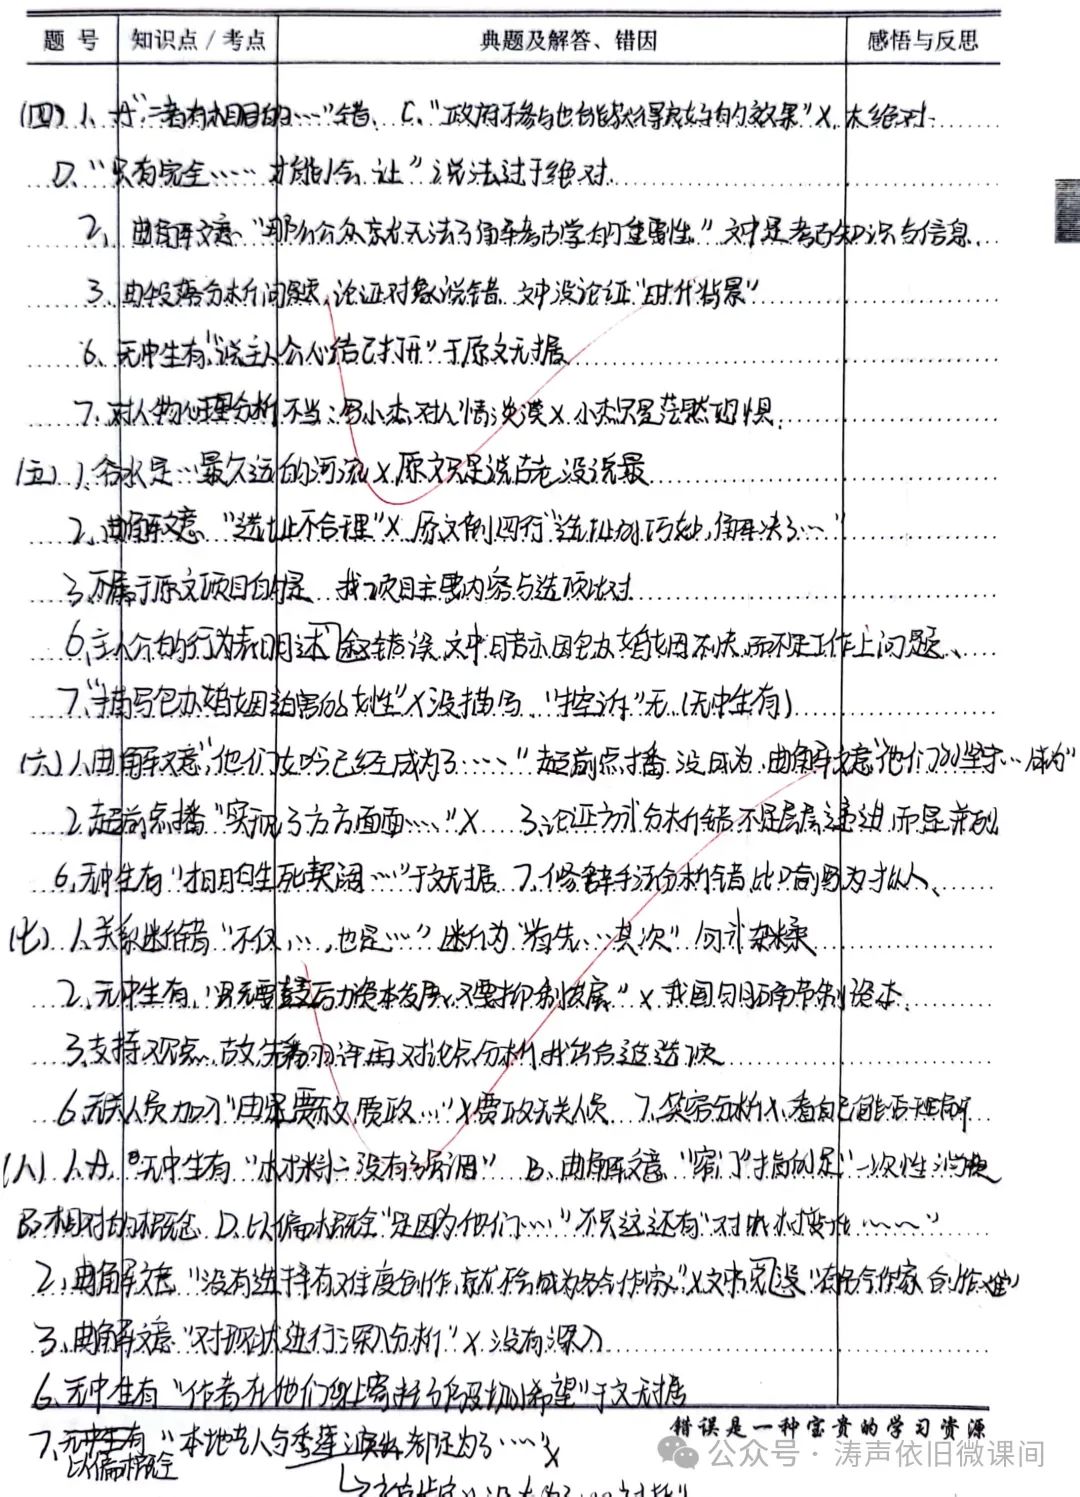 题 号 知识点 / 考点 典题及解答、错因 感悟与反思
(四) 1、A "二者有相同的……"错、C."政府不参与也能够获得良好的效果"X 太绝对.
D."只有完全…… 才能会 让"说法过于绝对.
2、曲解文意."那么公众就无法了解考古学的重要性." 文中是考古知识与信息.
3、由段落分析问题, 论证对象说错 文中没论证"时代背景"
6、无中生有"说主人公心结已打开"于原文无据
7、对人物心理分析不当:写小杰对人情淡漠X 小杰只是茫然恐惧.
(五) 1、合水是…最久远的河流X 原文只是说古老没说最
2、曲解文意 "选址不合理"X 原文倒四行"选址巧妙,解决了…"
3、不属于原文项目的是 找项目主要内容与选项比对
6、主人公的行为表明述错误 文中暗示因包办婚姻不快而不是工作上问题、
7、"描写包办婚姻迫害的女性"X没描写、"控诉"无 (无中生有)
(六) 1、曲解文意,"他们如今已经成为了……" 超前点播 没成为 曲解文意"他们的坚守…成为"
2、超前点播 "实现了方方面面……"X 3、论证方式分析错不是层层递进而是并列
6、无中生有 "相月生死契阔…"于文无据 7、修辞手法分析错 比喻因为拟人、
(七) 1、关系断错 "不仅…,也是…" 断为"首先…其次" 句式杂糅
2、无中生有 "只需要鼓励资本发展,不要抑制发展" X 我国节制资本.
3、支持观点 对论点分析, 找出合适选项
6、无关人员加入"由是贾政…"X贾政无关人员 7、 分析X 看自己能否理解
(八) 1、A、无中生有 "木材料二没有" B、曲解文意 "窄门"指的是"一次性消费
B、相对的概念 D、以偏概全"是因为他们…" 不只这还有"对
2、曲解文意 "没有选择有难度创作,就不会成为名合作家"X文中没"有合作家创作难"
3、曲解文意 "对现状进行深入分析" X 没有深入
6、无中生有 "作者在他们身上寄托了殷切希望"于文无据
7、以偏概全 "本地老人与季莲 都因为了……"X
错误是一种宝贵的学习资源
公众号 · 涛声依旧微课间